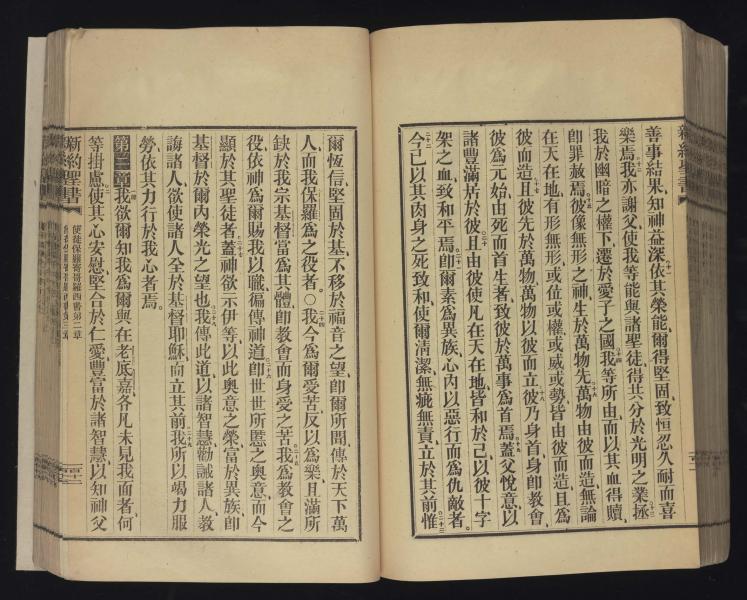 新約聖書
善事結果、知神益深、依其榮能、爾得堅固、致恒忍久耐而喜
樂焉、我亦謝父、使我等能與諸聖徒、得共分於光明之業、拯
我於幽暗之權下、遷於愛子之國、我等所由而以其血得贖、
卽罪赦焉、彼像無形之神、生於萬物先、萬物由彼而造、無論
在天在地、有形無形、或位或權、或威或勢、皆由彼而造、且爲
彼而造、且彼先於萬物、萬物以彼而立、彼乃身首、身卽敎會、
彼爲元始、由死而首生者、致彼於萬事爲首焉、蓋父悅意、以
諸豐滿居於彼、且由彼使凡在天在地、皆和於己、以彼十字
架之血致和平焉、卽爾素爲異族、心內以惡行而爲仇敵者、
今已以其肉身之死致和、使爾清潔、無疵無責、立於其前、惟
爾恆信堅固於基、不移於福音之望、卽爾所聞傳於天下萬
人、而我保羅爲之役者。○我今爲爾愛苦、反以爲樂、且滿所
缺於我宗基督當爲其體卽敎會而身愛之苦、我爲敎會之
役、依神爲爾賜我以職、徧傳神道、卽世世所慝之奧意、而今
顯於其聖徒者、蓋神欲示伊等、以此奧意之榮、富於異族、卽
基督於爾內榮光之望也、我傳此道、以諸智慧、勸誡諸人、敎
誨諸人、欲使諸人全於基督耶穌、而立其前、我所以竭力服
勞、依其力行於我心者焉。
第二章我欲爾知我爲爾與在老底嘉、各凡未見我面者、何
等掛慮、使其心安慰、堅合於仁愛、豐富於諸智慧、以知神父
新約聖書 使徒保羅寄哥羅西書第二章